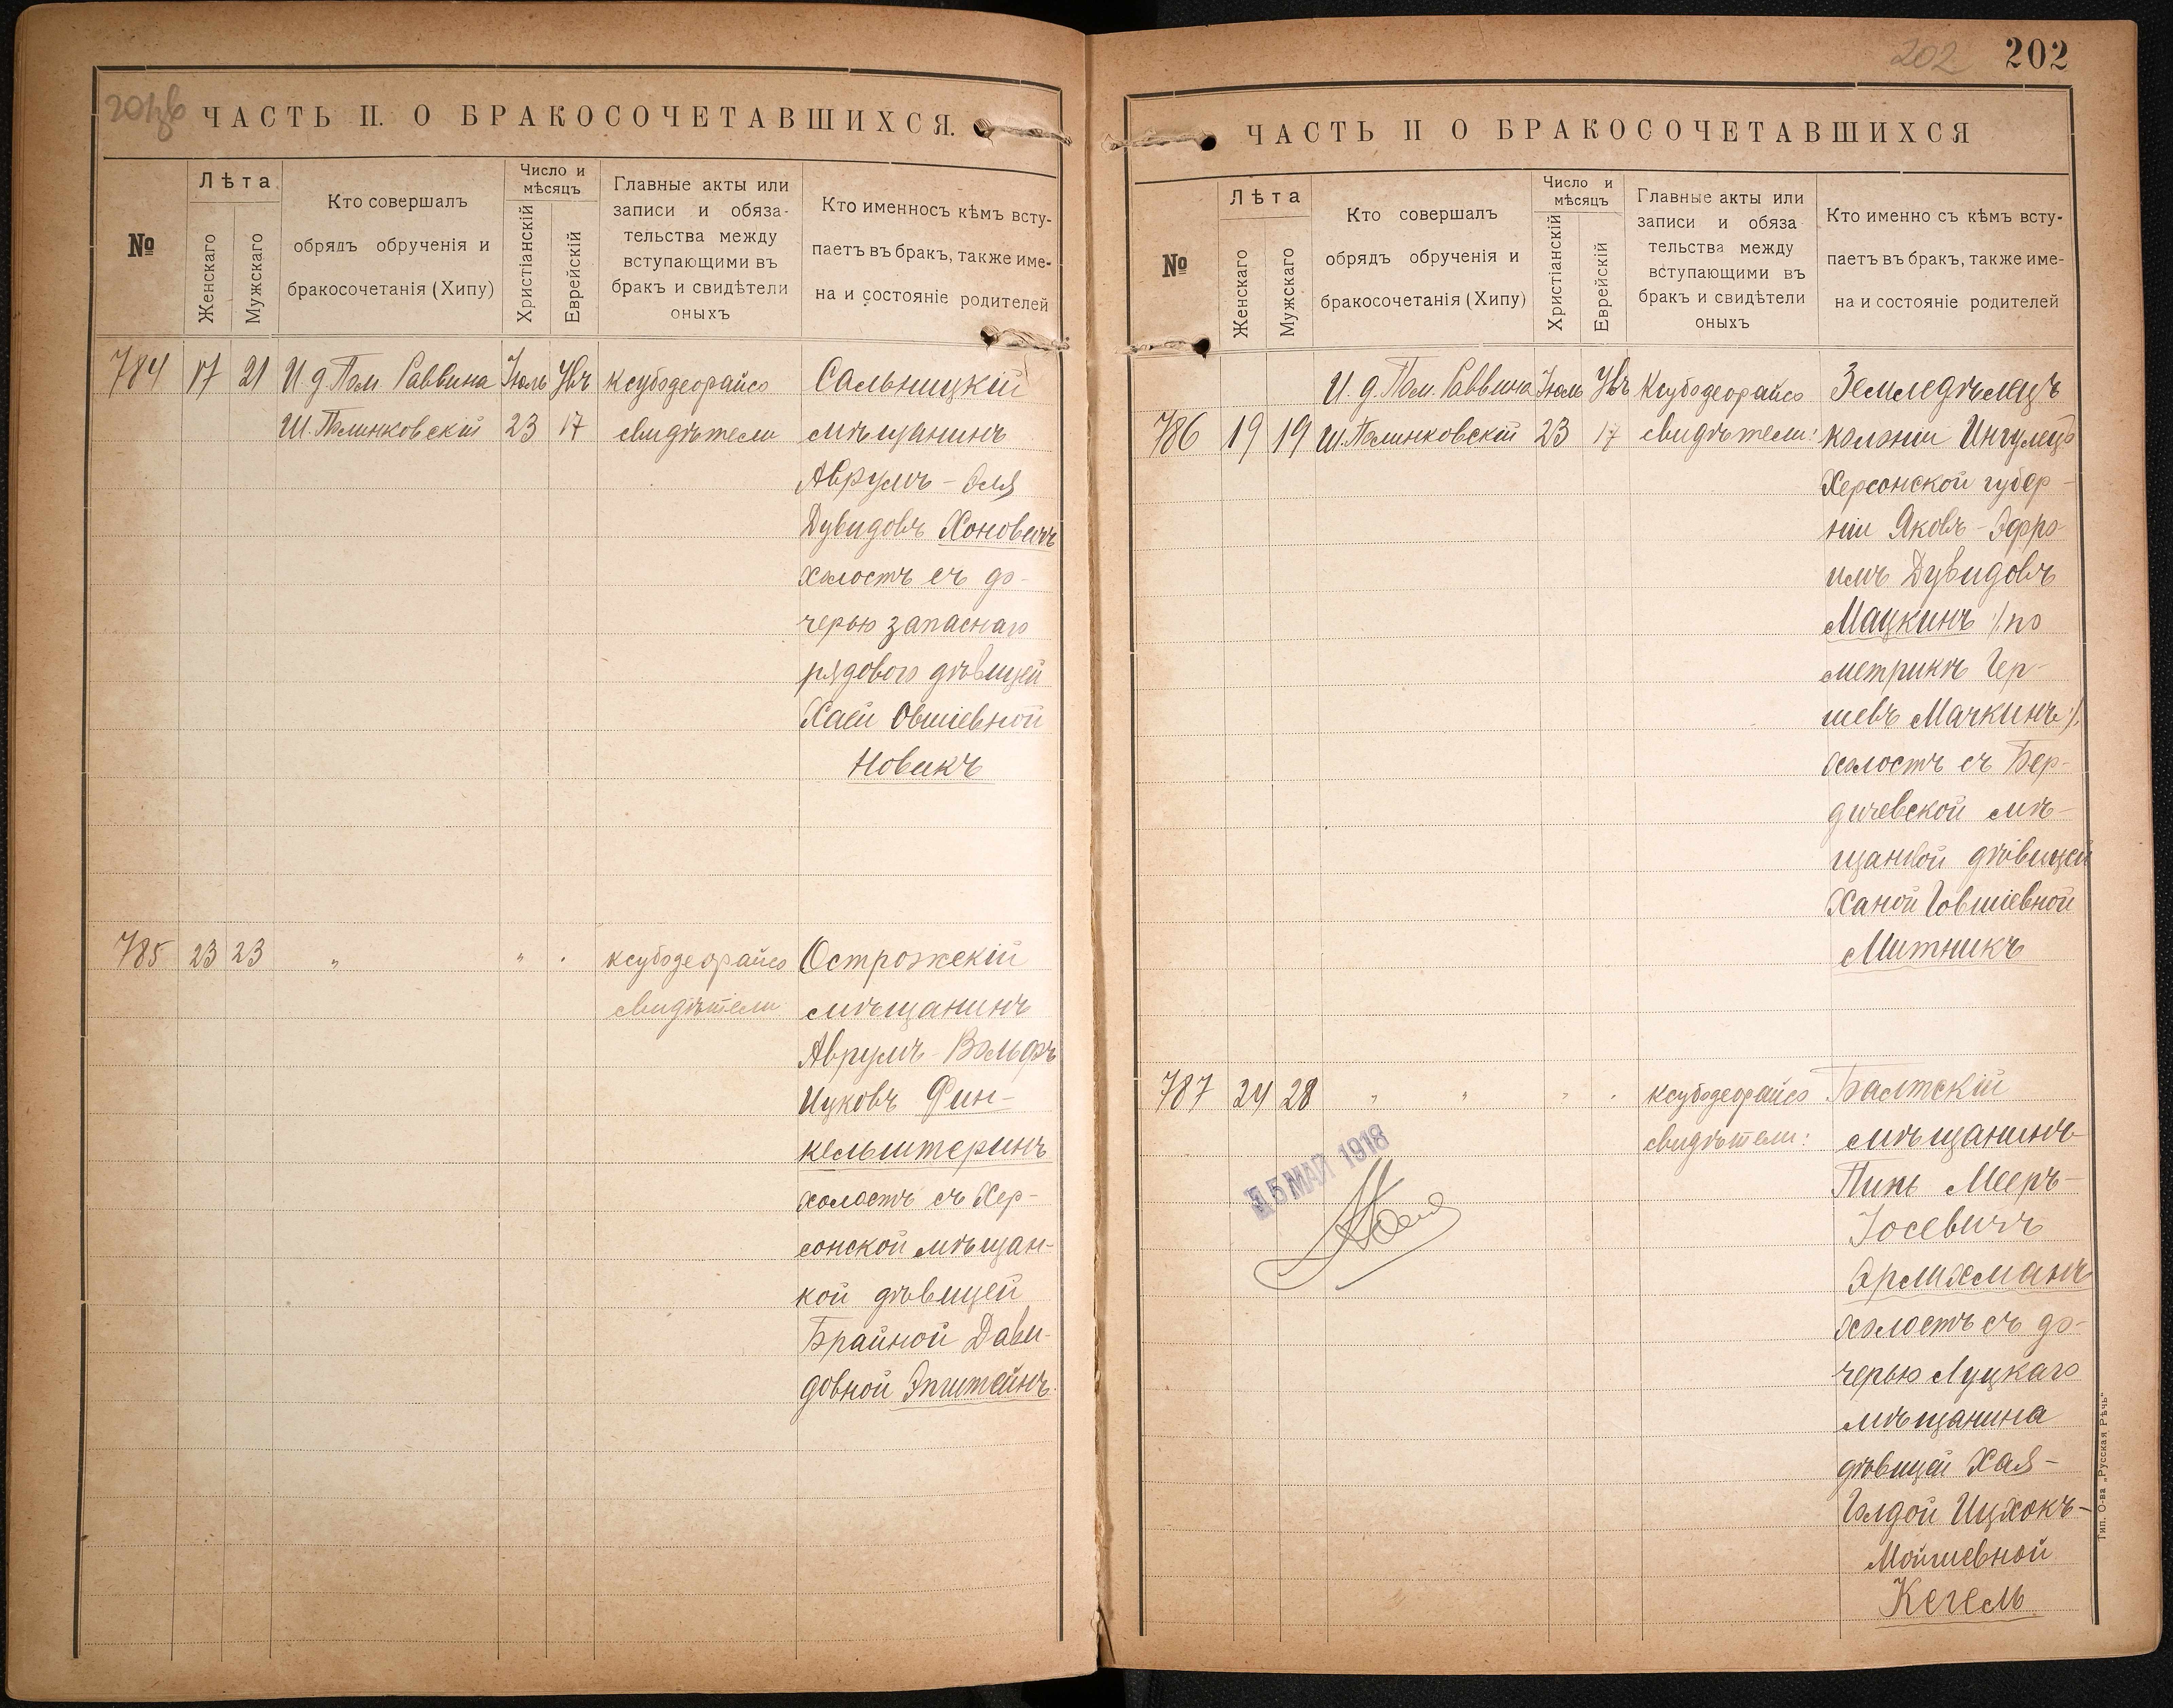 201зв
ЧАСТЬ II. О БРАКОСОЧЕТАВШИХСЯ.
№
Лѣта
Женскаго
Мужскаго
Кто совершалъ
обрядъ обрученія и
бракосочетанія (Хипу)
Число и
мѣсяцъ
Христіанскій
Еврейскій
Главные акты или
записи и обяза-
тельства между
вступающими въ
бракъ и свидѣтели
оныхъ
Кто именносъ кѣмъ всту-
паетъ въ бракъ, также име-
на и состояніе родителей
784 17 21 И д Пом Раввина Іюль Увъ ксубодеорайсо Сальницкій
Ш. Полинковскій 23 17 свидѣтели мѣщанинъ
Аврумъ - Эля
Дувидовъ Хоновичъ
холостъ съ до-
черью запаснаго
рядового дѣвицей
Хаей Овшіевной
Новикъ
785 23 23 " " " ксубодеорайсо Острожскій
свидѣтели мѣщанинъ
Аврумъ - Вольфъ
Ицковъ Фин-
кельштеринъ
холостъ съ Хер-
сонской мѣщан-
кой дѣвицей
Брайной Дави-
довной Эпштейнъ.
202 202
ЧАСТЬ II О БРАКОСОЧЕТАВШИХСЯ
№
Лѣта
Женскаго
Мужскаго
Кто совершалъ
обрядъ обрученія и
бракосочетанія (Хипу)
Число и
мѣсяцъ
Христіанскій
Еврейскій
Главные акты или
записи и обяза
тельства между
вступающими въ
бракъ и свидѣтели
оныхъ
Кто именно съ кѣмъ всту-
паетъ въ бракъ, также име-
на и состояніе родителей
И. д. Пом. Раввина Іюль Увъ Ксубодеорайсо Земледѣлецъ
786 19 19 Ш. Полинковскій 23 17 свидѣтели: колоніи Ингулецъ
Херсонской губер-
ніи Яковъ - Эфро-
имъ Дувидовъ
Мацкинъ /: по
метрикѣ Гер-
шевъ Мачкинъ :/.
холостъ съ Бер-
дичевской мѣ-
щанкой дѣвицей
Ханой Говшіевной
Митникъ
787 24 28 " " " " ксубодеорайсо Балтскій
свидѣтели: мѣщанинъ
Пинь Мееръ-
Іосевичъ
Эрлихманъ
холостъ съ до-
черью Луцкаго
мѣщанина
дѣвицей Хая-
Голдой Ицхокъ-
Мойшевной
Кегель
15 МАЙ 1918
Тип. О-ва „Русская Рѣчь“